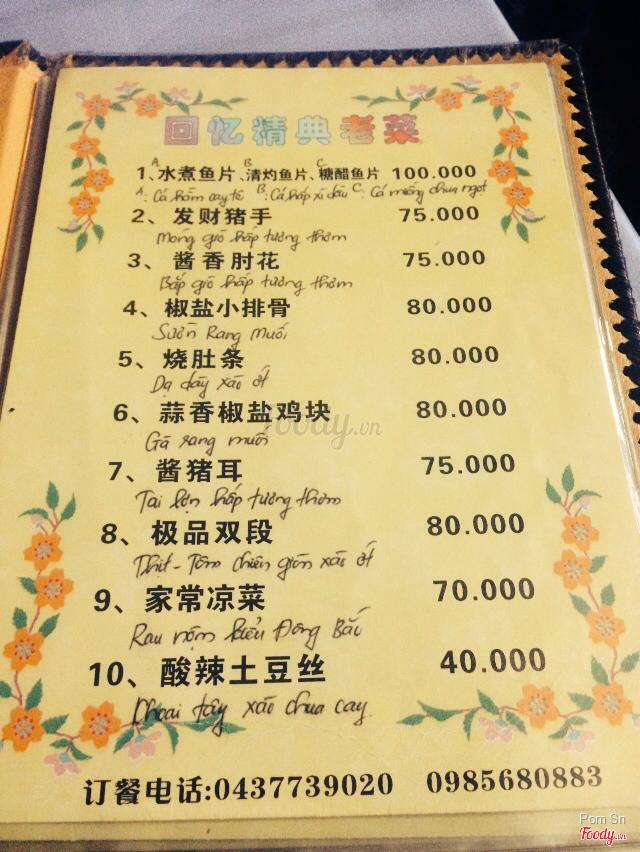 回忆精典老菜
1、水煮鱼片、清灼鱼片、糖醋鱼片 100.000
A B C
A: Cá hầm cay tê B: Cá hấp xì dầu C: Cá miếng chua ngọt
2、发财猪手 75.000
Móng giò hấp tương thơm
3、酱香肘花 75.000
Bắp giò hấp tương thơm
4、椒盐小排骨 80.000
Sườn Rang muối
5、烧肚条 80.000
Dạ dày xào ớt
6、蒜香椒盐鸡块 80.000
Gà rang muối
7、酱猪耳 75.000
Tai lợn hấp tương thơm
8、极品双段 80.000
Thịt - Tôm chiên giòn xào ớt
9、家常凉菜 70.000
Rau nộm kiểu Đông Bắc
10、酸辣土豆丝 40.000
Khoai tây xào chua cay.
订餐电话:0437739020 0985680883
foody.vn
Pom Sn
Foody.vn